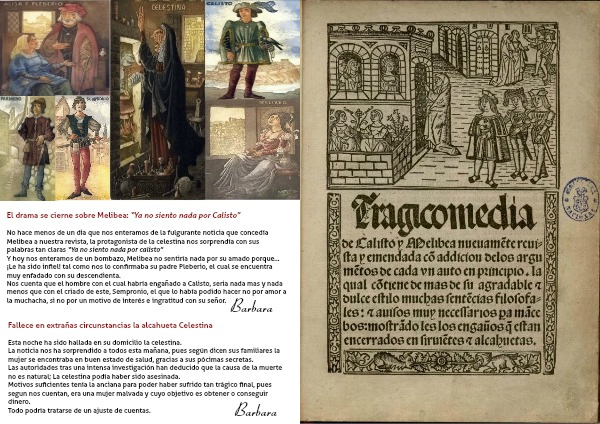 ALISA Y PLEBERIO
CELESTINA
CALISTO
PARMENO
SEMPRONIO
MELIBEA
El drama se cierne sobre Melibea: "Ya no siento nada por Calisto"
No hace menos de un día que nos enteramos de la fulgurante noticia que concedía
Melibea a nuestra revista, la protagonista de la celestina nos sorprendía con sus
palabras tan claras "Ya no siento nada por calisto"
Y hoy nos enteramos de un bombazo, Melibea no sentiría nada por su amado porque...
¡Le ha sido infiel! tal como nos lo confirmaba su padre Pleberio, el cual se encuentra
muy enfadado con su descendienta.
Nos cuenta que el hombre con el cual habría engañado a Calisto, sería nada mas y nada
menos que con el criado de este, Sempronio, el que lo había podido hacer no por amor a
la muchacha, si no por un motivo de interés e ingratitud con su señor.
Barbara
Fallece en extrañas circunstancias la alcahueta Celestina
Esta noche ha sido hallada en su domicilio la celestina.
La noticia nos ha sorprendido a todos esta mañana, pues según dicen sus familiares la
mujer se encontraba en buen estado de salud, gracias a sus pócimas secretas.
Las autoridades tras una intensa investigación han deducido que la causa de la muerte
no es natural; La celestina podía haber sido asesinada.
Motivos suficientes tenía la anciana para poder haber sufrido tan trágico final, pues
segun nos cuentan, era una mujer malvada y cuyo objetivo es obtener o conseguir
dinero.
Todo podria tratarse de un ajuste de cuentas.
Barbara
Tragicomedia
de Calisto y Melibea nueuamēte reui
sta y emendada cō addicion delos argu
mētos de cada vn auto en principio. la
qual cōtiene de mas de su agradable &
dulce estilo muchas sentēcias filosofa-
les: & auisos muy necessarios pa māce
bos: mostrādo les los engaños q̄ estan
encerrados en siruiētes & alcahuetas.